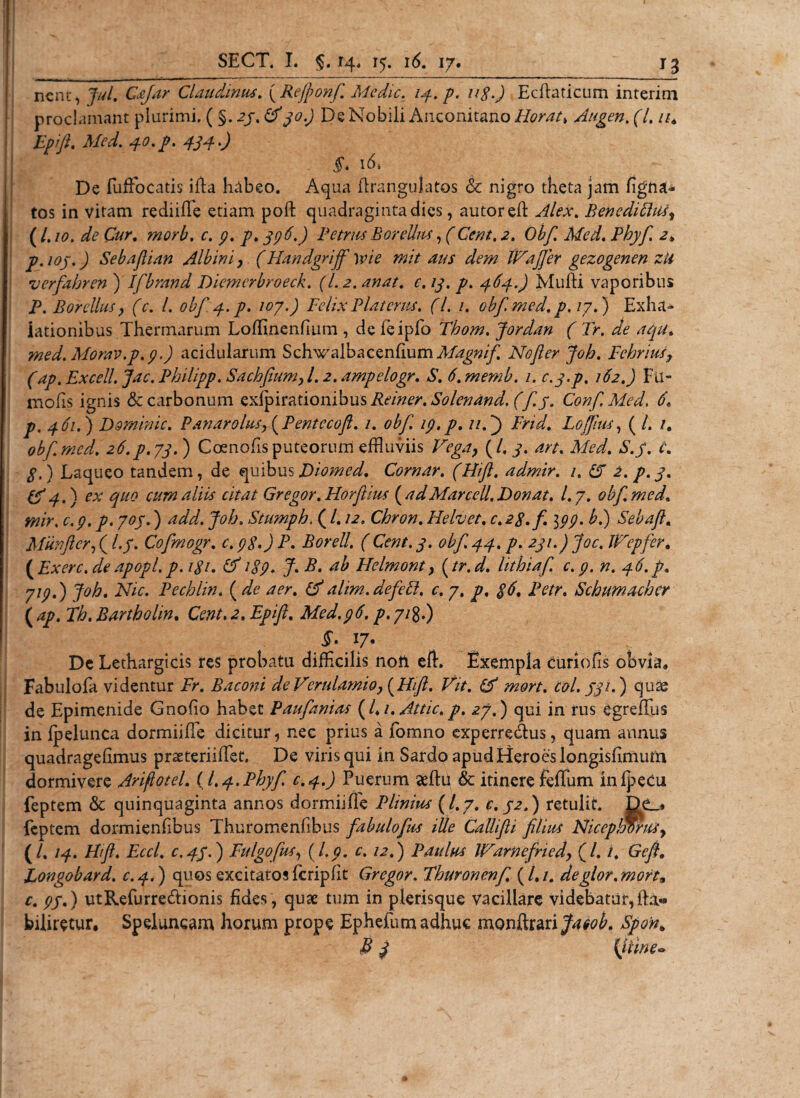 SECT. I. §. 14. 15. 16. 17. 13
nent, Jul. Cæsar Claudinus. (Responſ. Medic. 14. p. 118.) Ecſtaticum interim
proclamant plurimi. (§. 25. & 30.) De Nobili Anconitano Horat. Augen. (l. 11.
Epiſt. Med. 40. p. 434.)
§. 16.
De ſuffocatis iſta habeo. Aqua ſtrangulatos & nigro theta jam ſigna-
tos in vitam rediiſſe etiam poſt quadraginta dies, autor eſt Alex. Benedictus,
(l. 10. de Cur. morb. c. 9. p. 396.) Petrus Borellus, (Cent. 2. Obſ. Med. Phyſ. 2.
p. 105.) Sebaſtian Albini, (Handgriff wie mit aus dem Waſſer gezogenen zu
verfahren) Iſbrand Diemerbroeck. (l. 2. anat. c. 13. p. 464.) Muſti vaporibus
P. Borellus, (c. l. obſ. 4. p. 107.) Felix Platerus. (l. 1. obſ. med. p. 17.) Exha-
lationibus Thermarum Loſſinenſium, de ſeipſo Thom. Jordan (Tr. de aqu.
med. Morav. p. 9.) acidularum Schwalbacenſium Magnif. Noſter Joh. Fehrius,
(ap. Excell. Jac. Philipp. Sachſium, l. 2. ampelogr. S. 6. memb. 1. c. 3. p. 162.) Fu-
moſis ignis & carbonum exſpirationibus Reiner. Solenand. (ſ. 5. Conſ. Med. 6.
p. 461.) Dominic. Panarolus, (Pentecoſt. 1. obſ. 19. p. 11.) Frid. Loſſius, (l. 1.
obſ. med. 26. p. 73.) Cœnoſis puteorum effluviis Vega, (l. 3. art. Med. S. 5. c.
8.) Laqueo tandem, de quibus Diomed. Cornar. (Hiſt. admir. 1. & 2. p. 3.
& 4.) ex quo cum aliis citat Gregor. Horſtius (ad Marcell. Donat. l. 7. obſ. med.
mir. c. 9. p. 705.) add. Joh. Stumph. (l. 12. Chron. Helvet. c. 28. f. 399. b.) Sebaſt.
Münſter, (l. 5. Coſmogr. c. 98.) P. Borell. (Cent. 3. obſ. 44. p. 231.) Joc. Wepfer.
(Exerc. de apopl. p. 181. & 189. J. B. ab Helmont, (tr. d. lithiaſ. c. 9. n. 46. p.
719.) Joh. Nic. Pechlin. (de aer. & alim. defect. c. 7. p. 86. Petr. Schumacher
(ap. Th. Bartholin. Cent. 2. Epiſt. Med. 96. p. 718.)
§. 17.
De Lethargicis res probatu difficilis non eſt. Exempla curioſis obvia.
Fabuloſa videntur Fr. Baconi de Verulamio, (Hiſt. Vit. & mort. col. 531.) quæ
de Epimenide Gnoſio habet Pauſanias (l. 1. Attic. p. 27.) qui in rus egreſſus
in ſpelunca dormiiſſe dicitur, nec prius à ſomno experrectus, quam annus
quadrageſimus præteriiſſet. De viris qui in Sardo apud Heroës longisſimum
dormivere Ariſtotel. (l. 4. Phyſ. c. 4.) Puerum æſtu & itinere feſſum in ſpecu
ſeptem & quinquaginta annos dormiiſſe Plinius (l. 7. c. 52.) retulit. De
ſeptem dormienſibus Thuromenſibus fabuloſus ille Calliſti filius Nicephorus,
(l. 14. Hiſt. Eccl. c. 45.) Fulgoſus, (l. 9. c. 12.) Paulus Warnefried, (l. 1. Geſt.
Longobard. c. 4.) quos excitatos ſcripſit Gregor. Thuronenſ. (l. 1. de glor. mort.
c. 95.) ut Reſurrectionis fides, quæ tum in plerisque vacillare videbatur, ſta-
biliretur. Speluncam horum prope Epheſum adhuc monſtrari Jacob. Spon.
B 3 (itine-